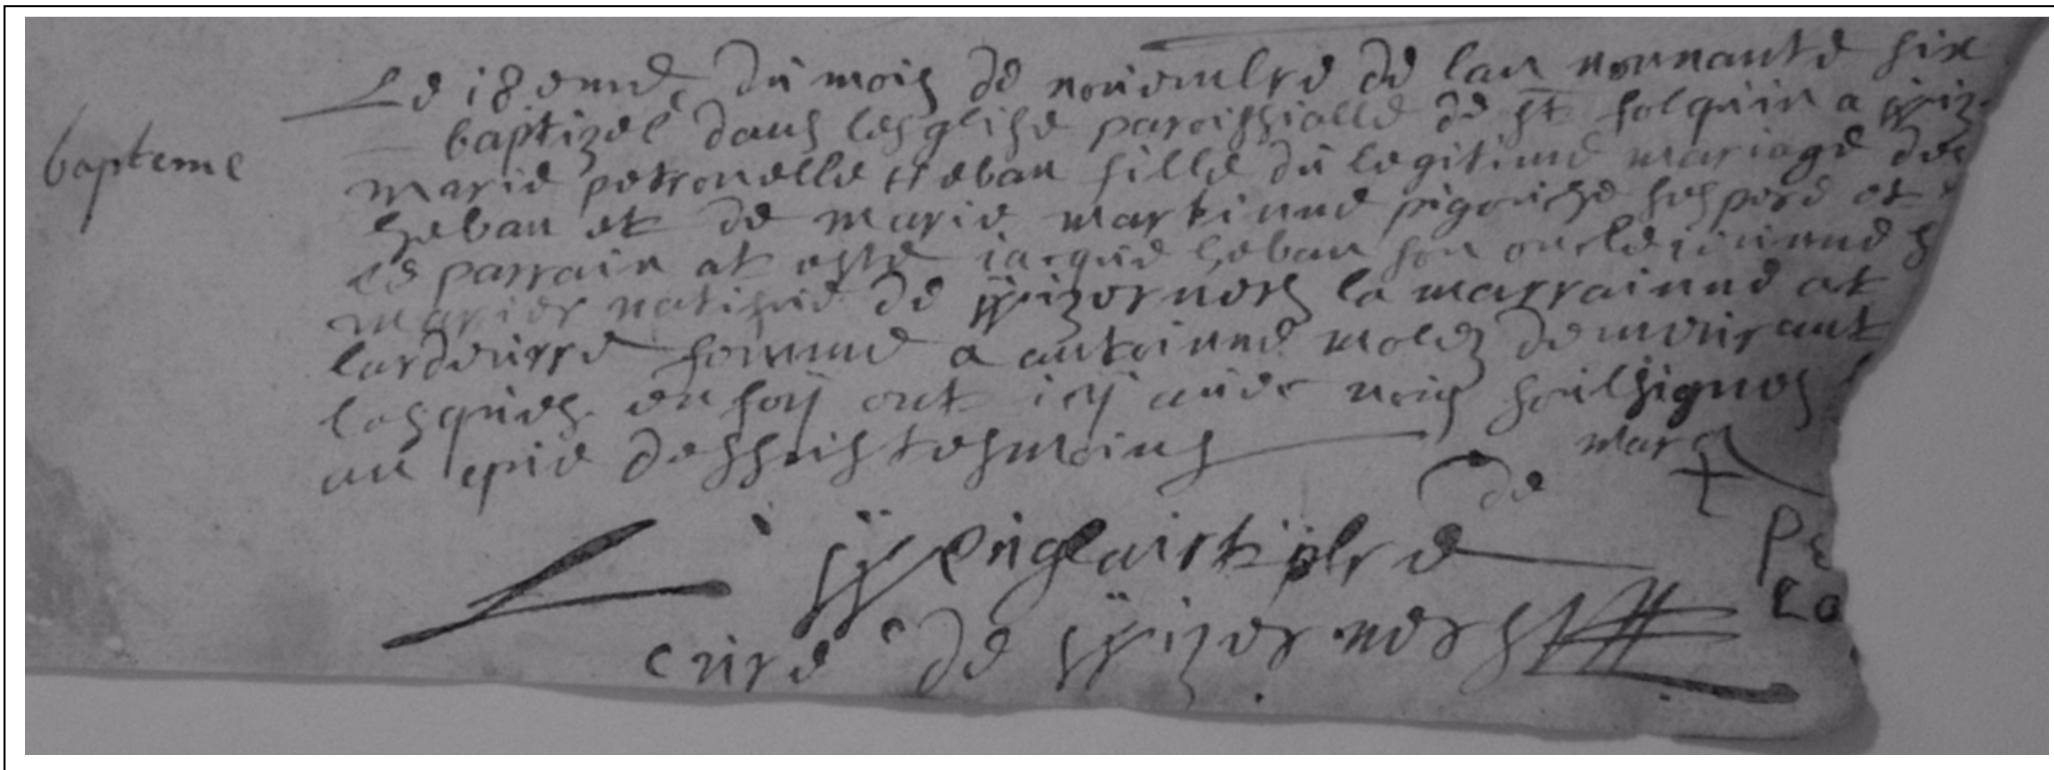 Le 18eme du mois de nouembre de lan nonnante six
bapteme
baptizée dans lesglise paroissialle de st folquin a wiz
marie petronelle heban fille du legitime mariage de
heban et de marie martinne pigouche ses pere et
le parrain at esté iacque heban son oncle
natifue de wizernes la marrainne at
femme a antoinne demeurant
lesques en foy ont icy auec nous soussignes
au pie desseus tesmoins
marq
de
curé de wizernes
Pe
La